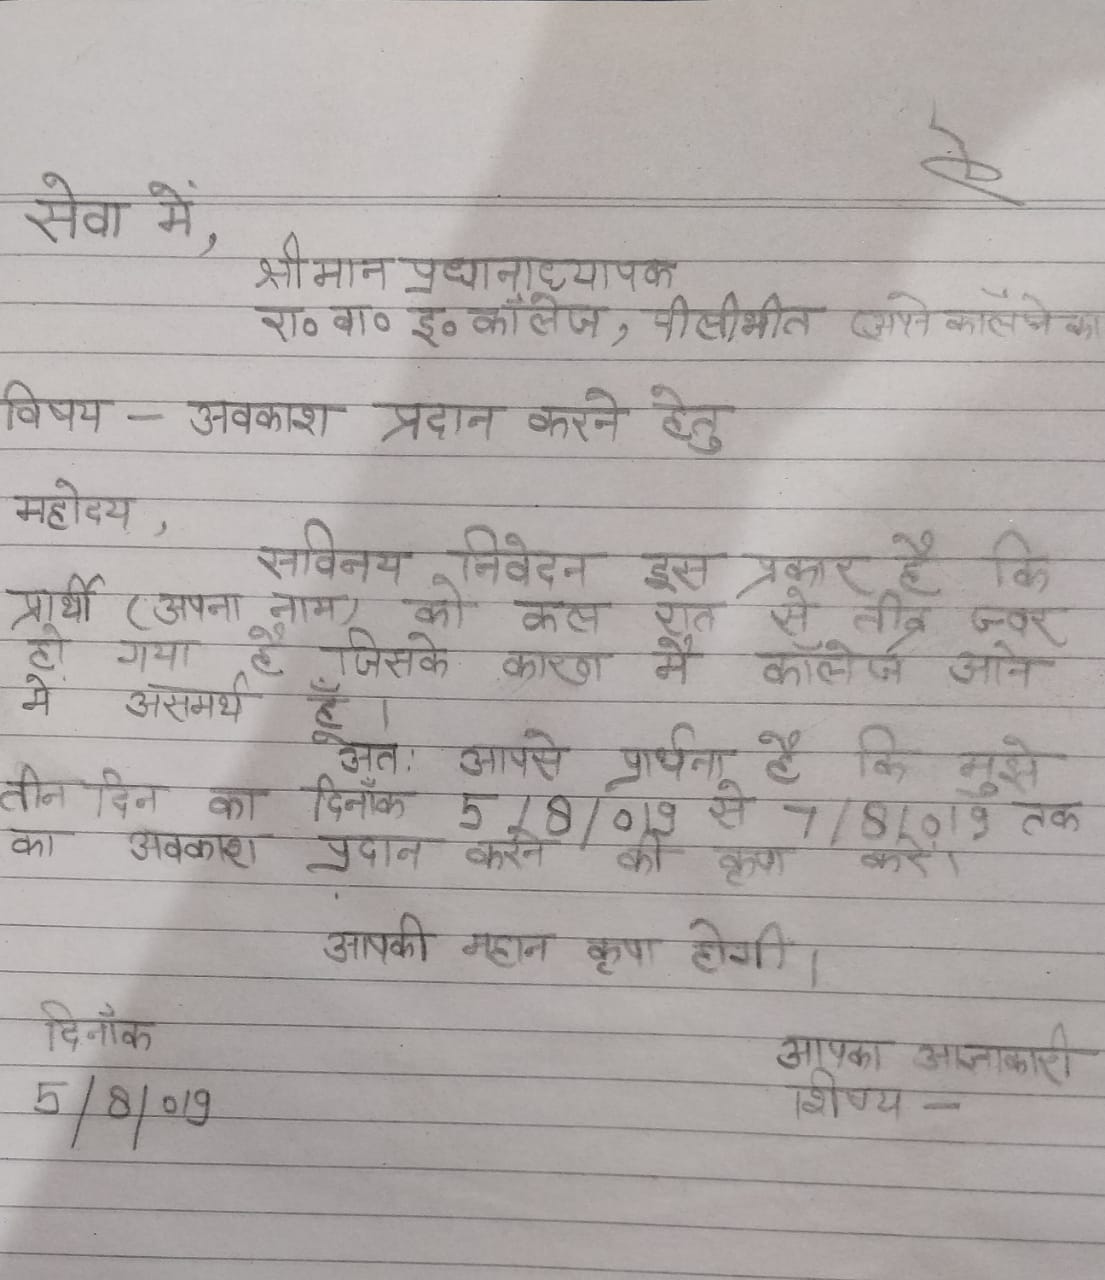 सेवा में,
श्रीमान प्रधानाध्यापक
रा० बा० इ० कॉलेज, पीलीभीत (अपने कॉलेज का
विषय - अवकाश प्रदान करने हेतु
महोदय,
सविनय निवेदन इस प्रकार है कि
प्रार्थी (अपना नाम) को कल रात से तीव्र ज्वर
हो गया है जिसके कारण मैं कॉलेज आने
में असमर्थ हूँ।
अतः आपसे प्रार्थना है कि मुझे
तीन दिन का दिनाँक 5/8/019 से 7/8/019 तक
का अवकाश प्रदान करने की कृपा करें।
आपकी महान कृपा होगी।
दिनाँक
आपका आज्ञाकारी
5/8/019
शिष्य -